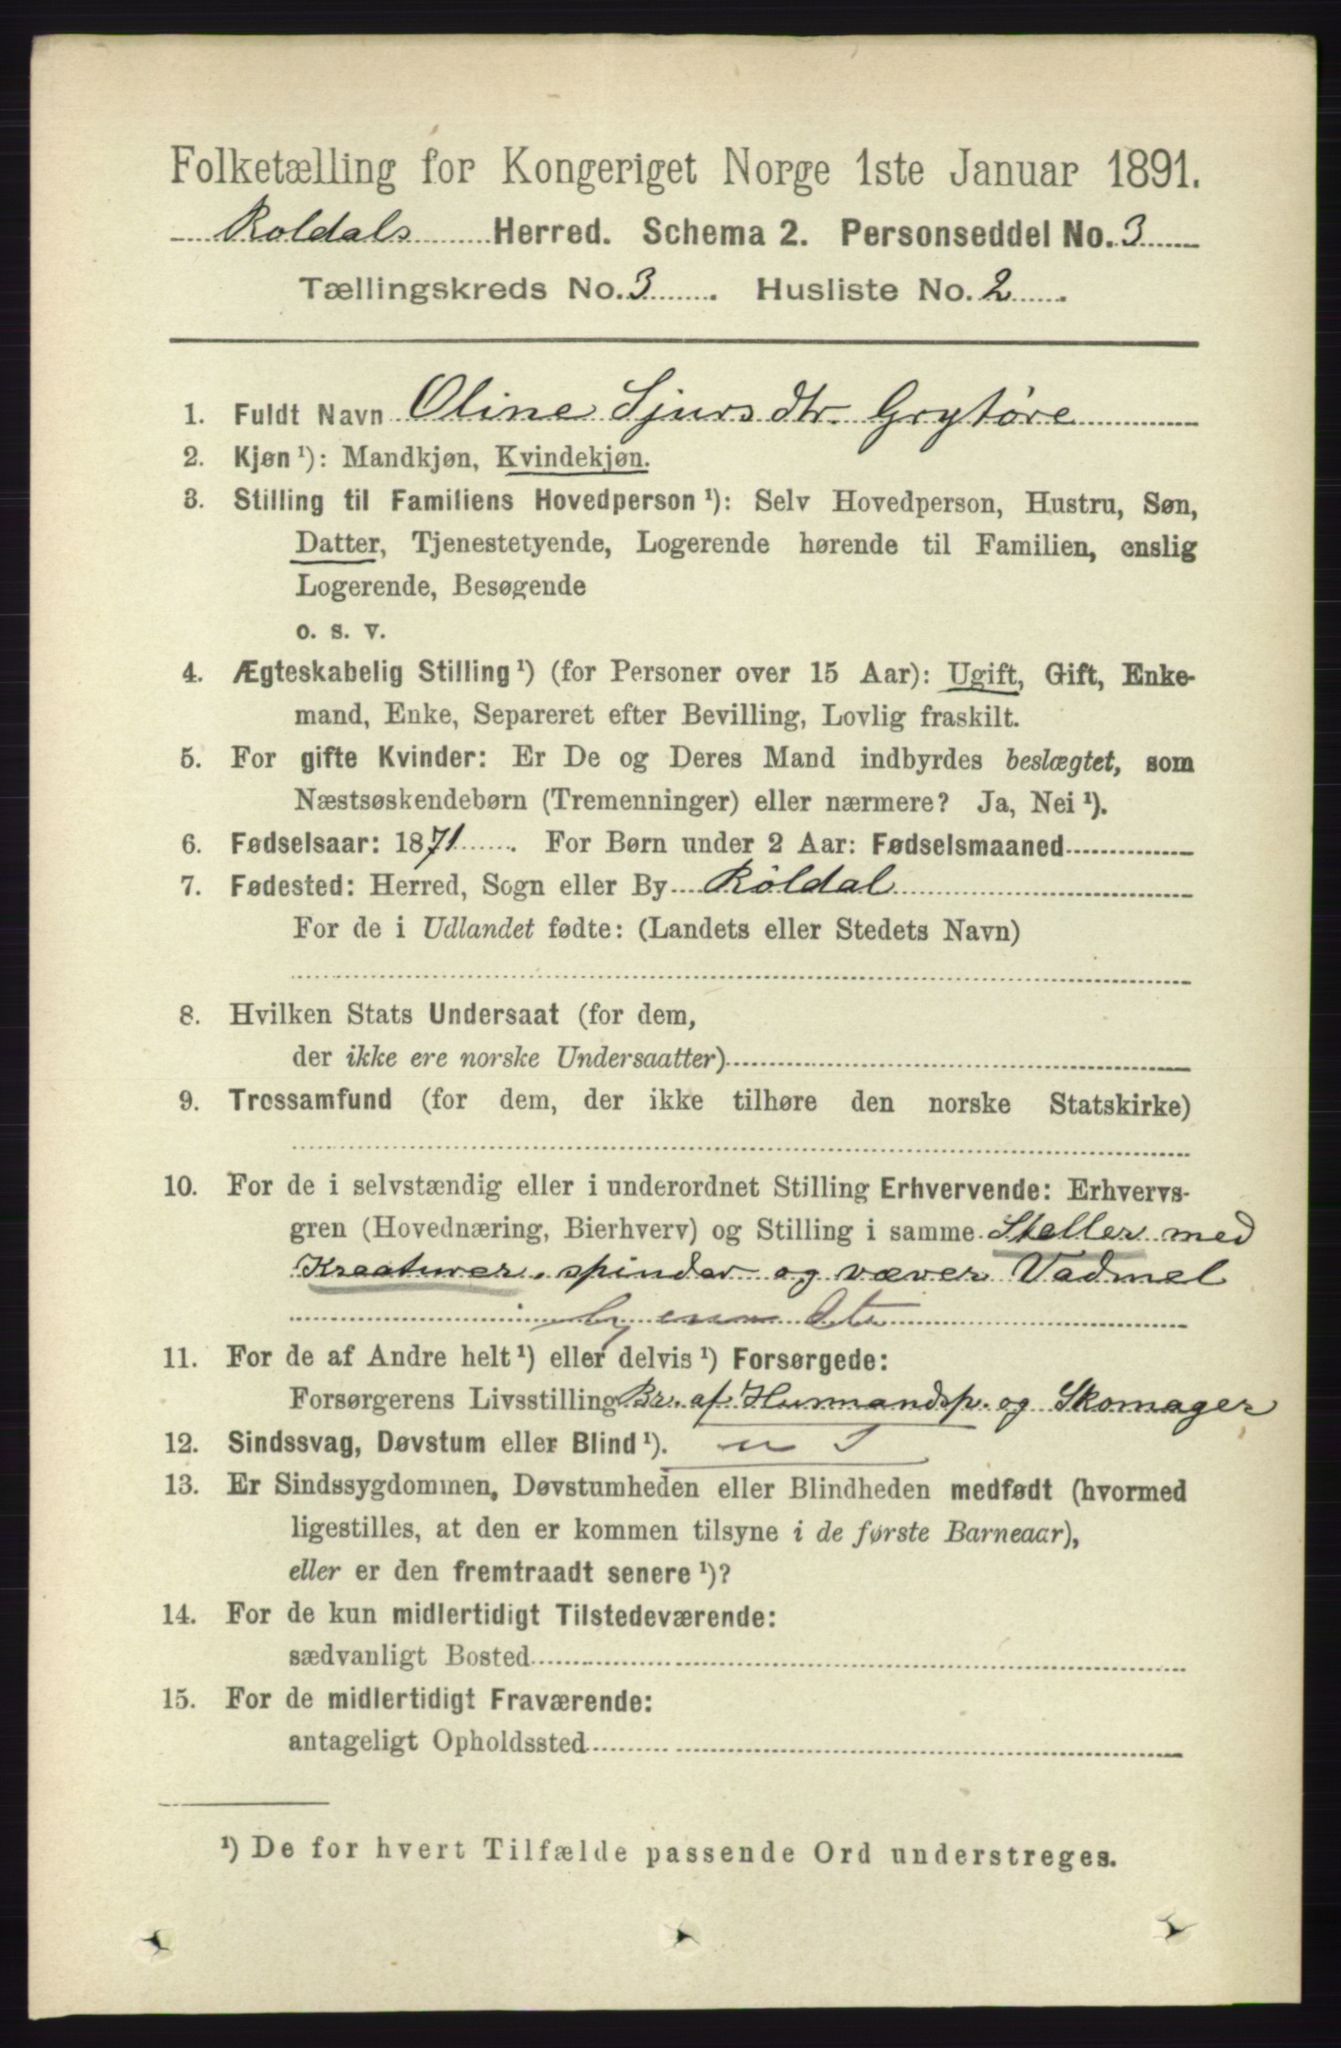 Folketælling for Kongeriget Norge 1ste Januar 1891.
Roldals Herred. Schema 2. Personseddel No. 3
Tællingskreds No. 3. Husliste No. 2.
1. Fuldt Navn Oline Sjurs dtr. Grytøre
2. Kjøn¹): Mandkjøn, Kvindekjøn.
3. Stilling til Familiens Hovedperson¹): Selv Hovedperson, Hustru, Søn,
Datter, Tjenestetyende, Logerende hørende til Familien, enslig
Logerende, Besøgende
o. s. v.
4. Ægteskabelig Stilling¹) (for Personer over 15 Aar): Ugift, Gift, Enke-
mand, Enke, Separeret efter Bevilling, Lovlig fraskilt.
5. For gifte Kvinder: Er De og Deres Mand indbyrdes beslægtet, som
Næstsøskendebørn (Tremenninger) eller nærmere? Ja, Nei¹).
6. Fødselsaar: 1871. For Børn under 2 Aar: Fødselsmaaned
7. Fødested: Herred, Sogn eller By Röldal
For de i Udlandet fødte: (Landets eller Stedets Navn)
8. Hvilken Stats Undersaat (for dem,
der ikke ere norske Undersaatter)
9. Trossamfund (for dem, der ikke tilhøre den norske Statskirke)
10. For de i selvstændig eller i underordnet Stilling Erhvervende: Erhvervs-
gren (Hovednæring, Bierhverv) og Stilling i samme Steller med
Kreaturer, spinder og væver Vadmel
11. For de af Andre helt¹) eller delvis¹) Forsørgede:
Forsørgerens Livsstilling Br. af Husmandsp. og Skomager
12. Sindssvag, Døvstum eller Blind¹).
13. Er Sindssygdommen, Døvstumheden eller Blindheden medfødt (hvormed
ligestilles, at den er kommen tilsyne i de første Barneaar),
eller er den fremtraadt senere¹)?
14. For de kun midlertidigt Tilstedeværende:
sædvanligt Bosted
15. For de midlertidigt Fraværende:
antageligt Opholdssted
¹) De for hvert Tilfælde passende Ord understreges.